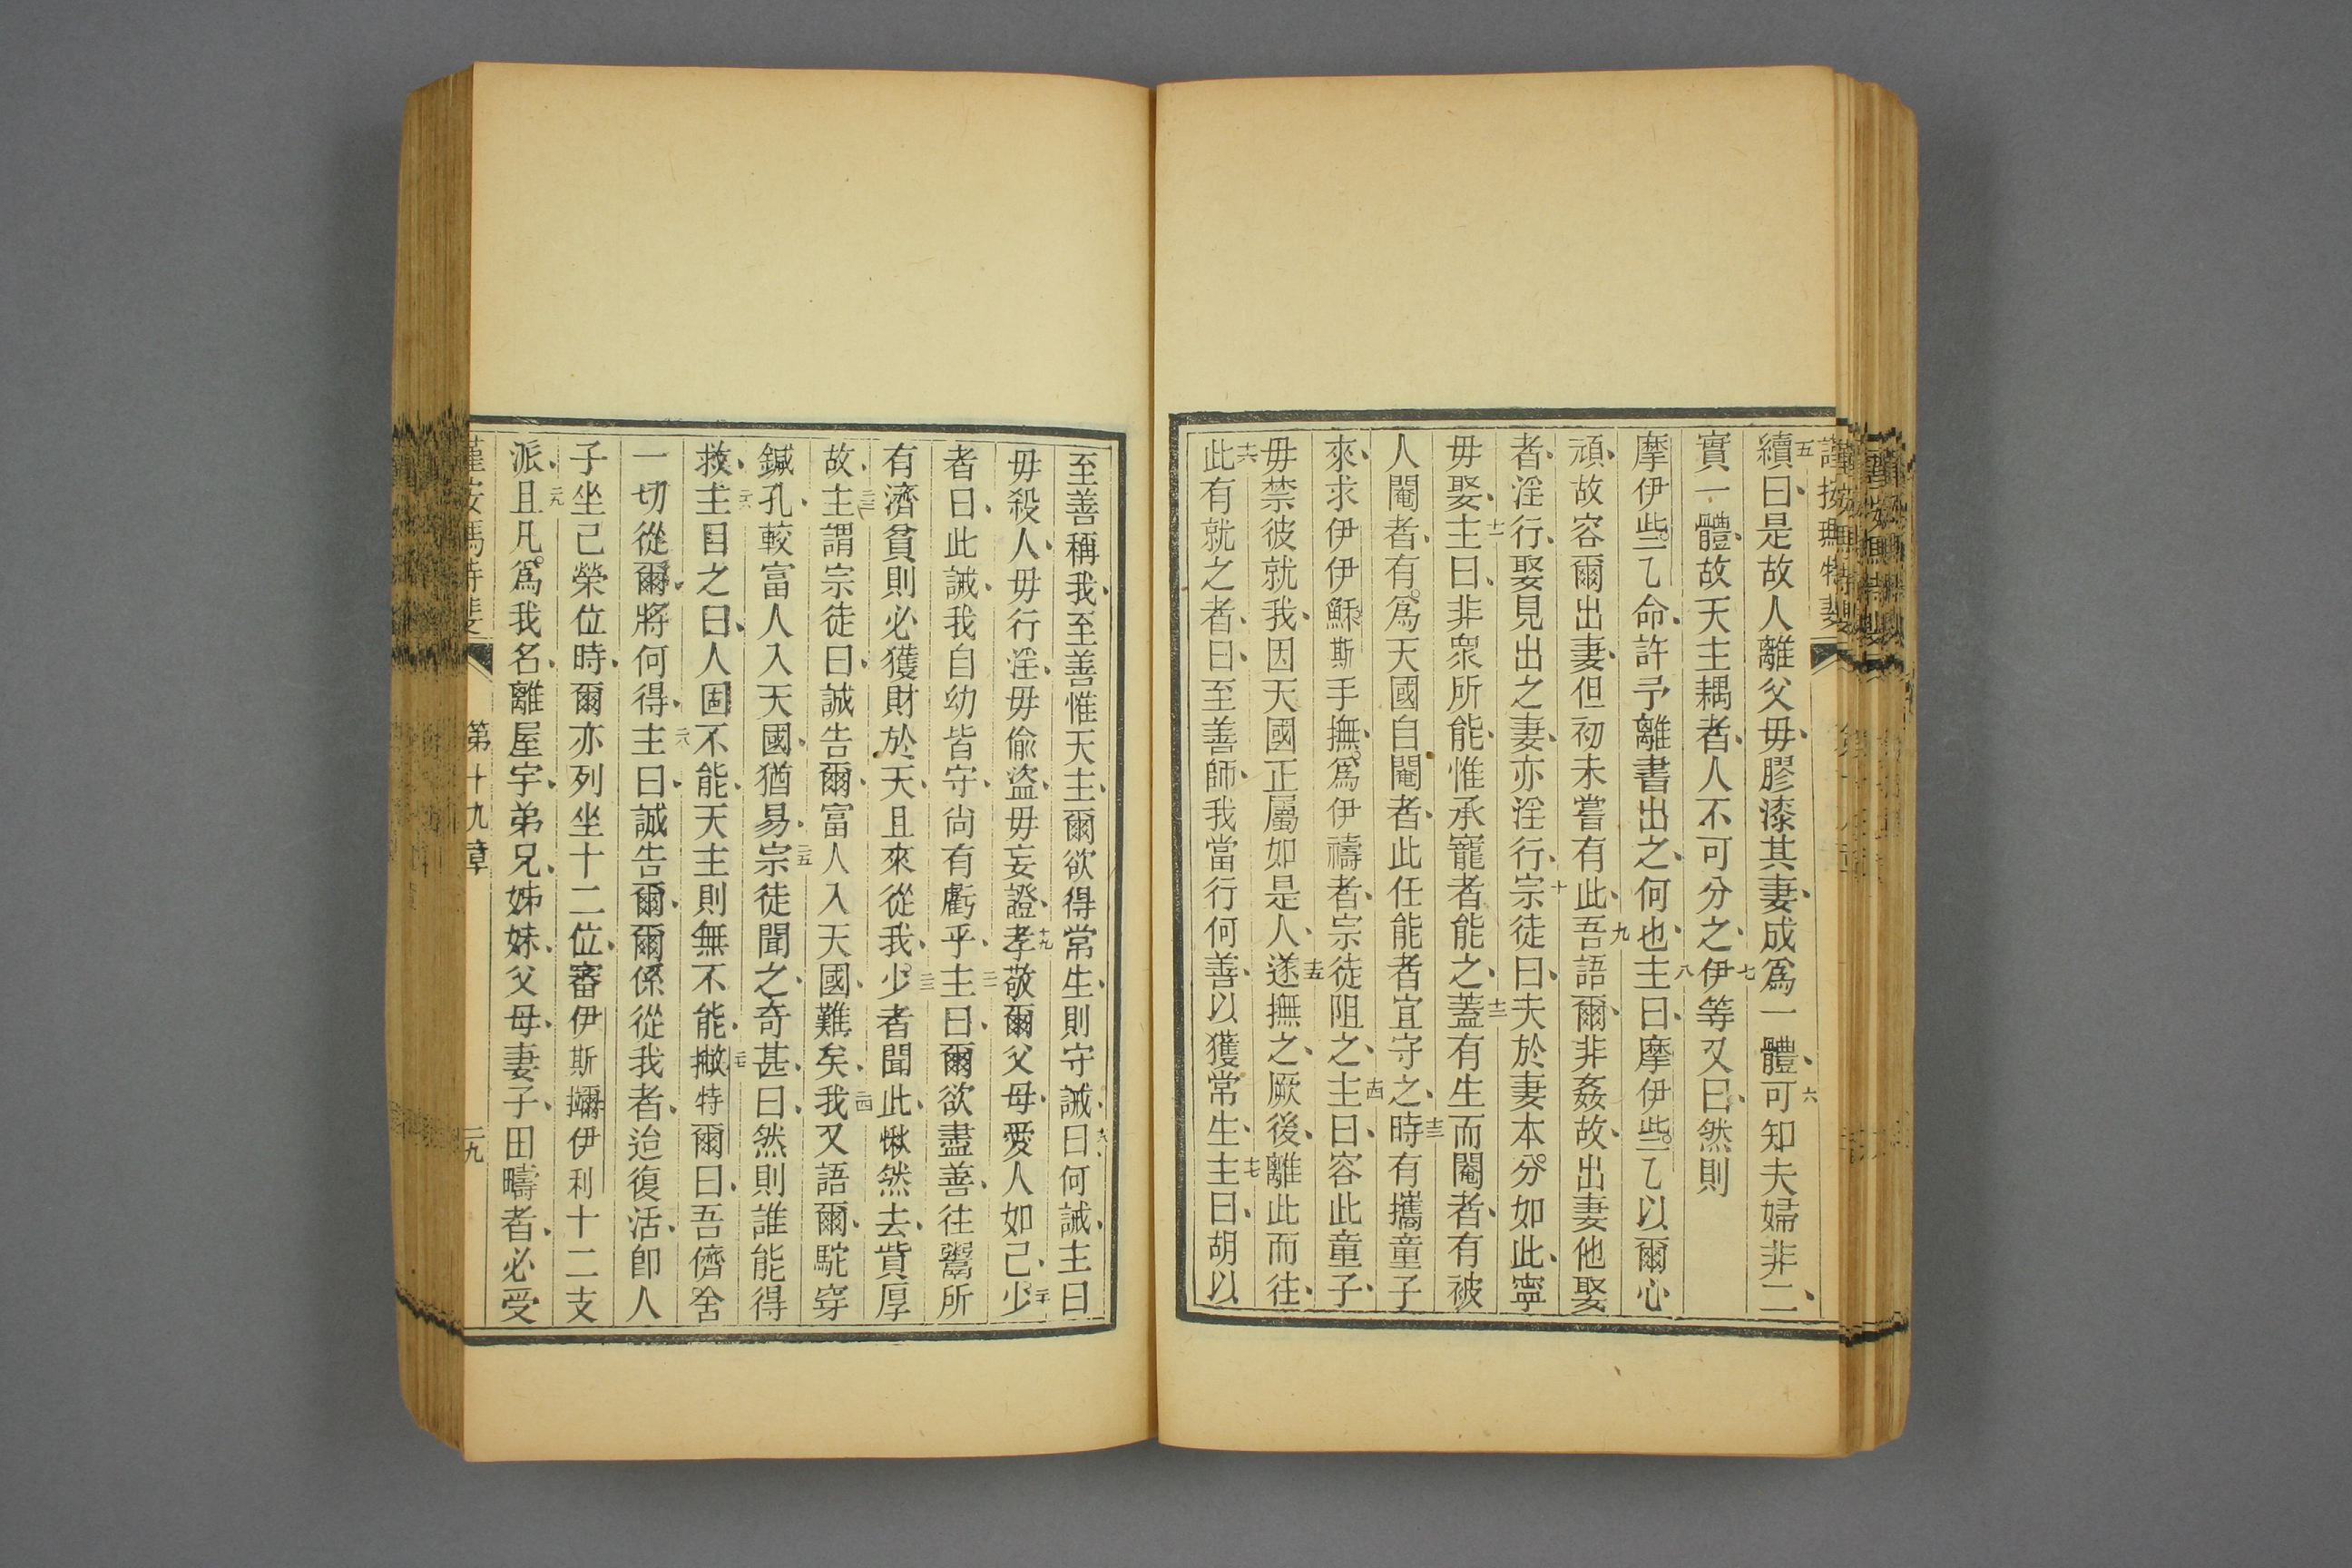 五續曰、是故人離父毋、膠漆其妻、成爲一體、六可知夫婦非二、
實一體、故天主耦者、人不可分之、七伊等又曰、然則
摩伊些乙命、許予離書出之、何也、八主曰、摩伊些乙以爾心
頑、故容爾出妻、但初未嘗有此、九吾語爾、非姦故、出妻他娶
者、淫行、娶見出之妻、亦淫行、十宗徒曰、夫於妻本分如此、寧
毋娶、十一主曰、非衆所能、惟承寵者能之、十二蓋有生而閹者、有被
人閹者、有爲天國自閹者、此任能者宜守之、十三時有攜童子
來、求伊伊穌斯手撫、爲伊禱者、宗徒阻之、十四主曰、容此童子、
毋禁彼就我、因天國正屬如是人、十五遂撫之、厥後、離此而往、
十六此有就之者、曰、至善師、我當行何善、以獲常生、十七主曰、胡以
至善稱我、至善惟天主、爾欲得常生、則守誡、十八曰何誡、主曰
毋殺人、毋行淫、毋偷盜、毋妄證、十九孝敬爾父母、愛人如己、二十少
者曰、此誡、我自幼皆守、尙有虧乎、二一主曰、爾欲盡善、往鬻所
有濟貧、則必獲財於天、且來從我、二二少者聞此、愀然去、貲厚
故、二三主謂宗徒曰、誠告爾、富人入天國、難矣、二四我又語爾、駝穿
鍼孔、較富人入天國、猶易、二五宗徒聞之、奇甚、曰、然則誰能得
救、二六主目之曰、人固不能、天主則無不能、二七撇特爾曰、吾儕舍
一切從爾、將何得、二八主曰、誠告爾、爾係從我者、迨復活、卽人
子坐己榮位時、爾亦列坐十二位、審伊斯㣆伊利十二支
派、二九且凡爲我名、離屋宇、弟兄、姊妹、父母、妻子、田疇者、必受
第十九章
二九